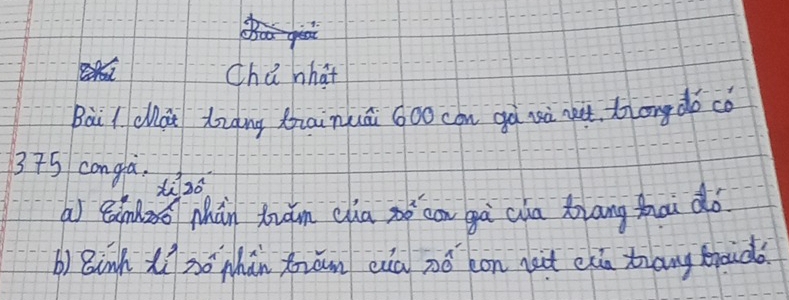 Chủ nhật
Bài 1. Một trang trại nuôi 600 con gà và vịt, trong đó có
375 con gà.
tỉ số
a) Tính phần trăm của số con gà của trang trại đó
b) Tính tỉ số phần trăm của số con vịt của trang trại đó.